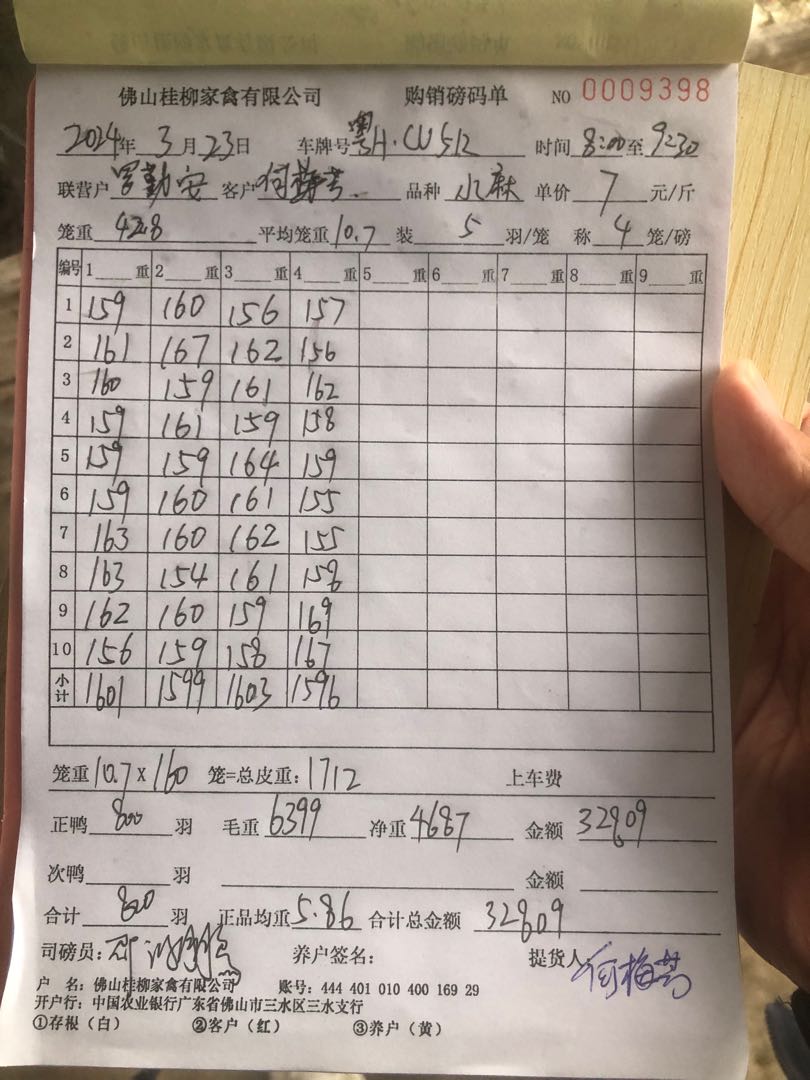 佛山桂柳家禽有限公司 购销磅码单 NO 0009398
2024年 3月23日 车牌号 粤H·CU512 时间 8:00至9:30
联营户 罗勤安 客户 何梅 品种 水麻 单价 7 元/斤
笼重 42.8 平均笼重 10.7 装 5 羽/笼 称 4 笼/磅
编号 1 重 2 重 3 重 4 重 5 重 6 重 7 重 8 重 9 重
1 159 160 156 157
2 161 167 162 156
3 160 159 161 162
4 159 161 159 158
5 159 159 164 159
6 159 160 161 155
7 163 160 162 155
8 163 154 161 158
9 162 160 159 169
10 156 159 158 167
小计 1601 1599 1603 1596
笼重 10.7 X 160 笼=总皮重: 1712 上车费
正鸭 800 羽 毛重 6399 净重 4687 金额 32809
次鸭 羽 金额
合计 800 羽 正品均重 5.86 合计总金额 32809
司磅员: 养户签名: 提货人 何梅
户 名: 佛山桂柳家禽有限公司 账号: 444 401 010 400 169 29
开户行: 中国农业银行广东省佛山市三水区三水支行
①存根(白) ②客户(红) ③养户(黄)